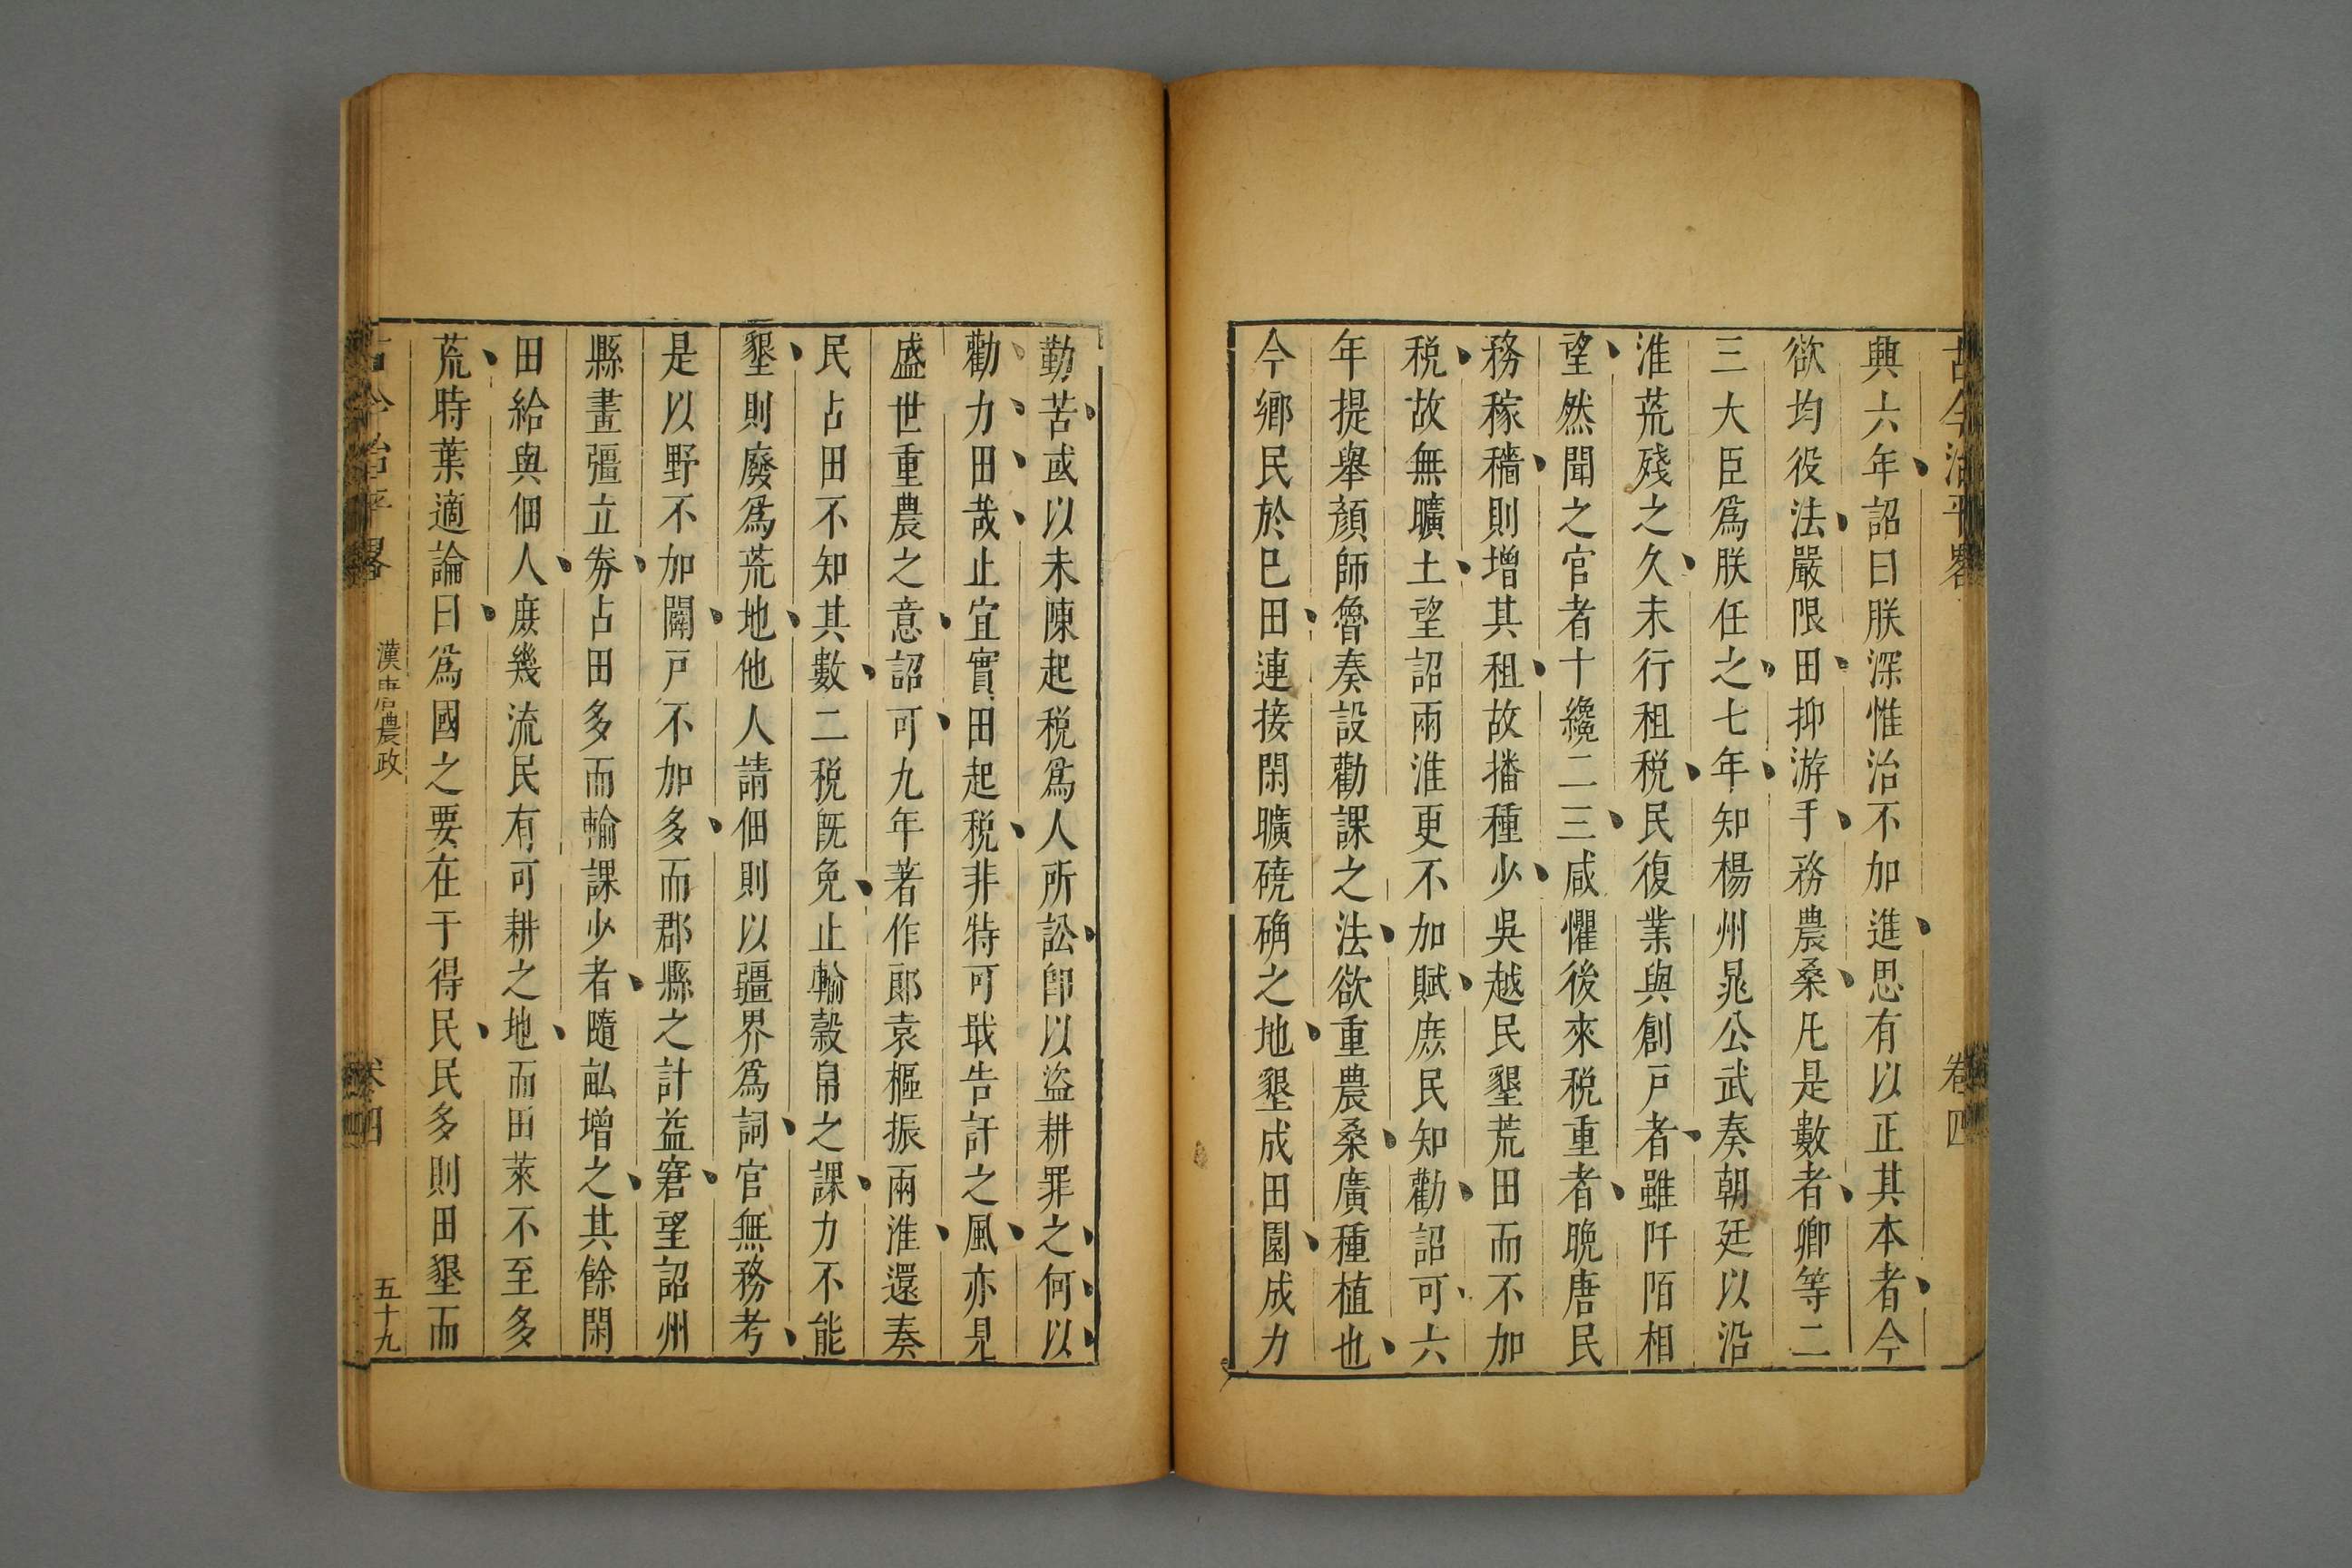 古今治平畧 卷四
典六年詔曰朕深惟治不加進思有以正其本者今
欲均役法嚴限田抑游手務農桑凡是數者卿等二
三大臣爲朕任之七年知楊州晁公武奏朝廷以沿
淮荒殘之久未行租税民復業與創戸者雖阡陌相
望然聞之官者十纔二三咸懼後來税重者晩唐民
務稼穡則增其租故播種少吳越民墾荒田而不加
税故無曠土望詔兩淮更不加賦庶民知勸詔可六
年提舉顏師魯奏設勸課之法欲重農桑廣種植也
今鄉民於已田連接閑曠磽确之地墾成田園成力
勤苦或以未陳起税爲人所訟卽以盜耕罪之何以
勸力田哉止宜實田起税非特可戢告訐之風亦見
盛世重農之意詔可九年著作郎袁樞振兩淮還奏
民占田不知其數二税旣免止輸榖帛之課力不能
墾則廢爲荒地他人請佃則以疆界爲詞官無務考
是以野不加闢戸不加多而郡縣之計益窘望詔州
縣畫彊立劵占田多而輸課少者隨畝增之其餘閑
田給與佃人庶幾流民有可耕之地而田萊不至多
荒時葉適論曰爲國之要在于得民民多則田墾而
古今治平畧 漢唐農政 卷四 五十九